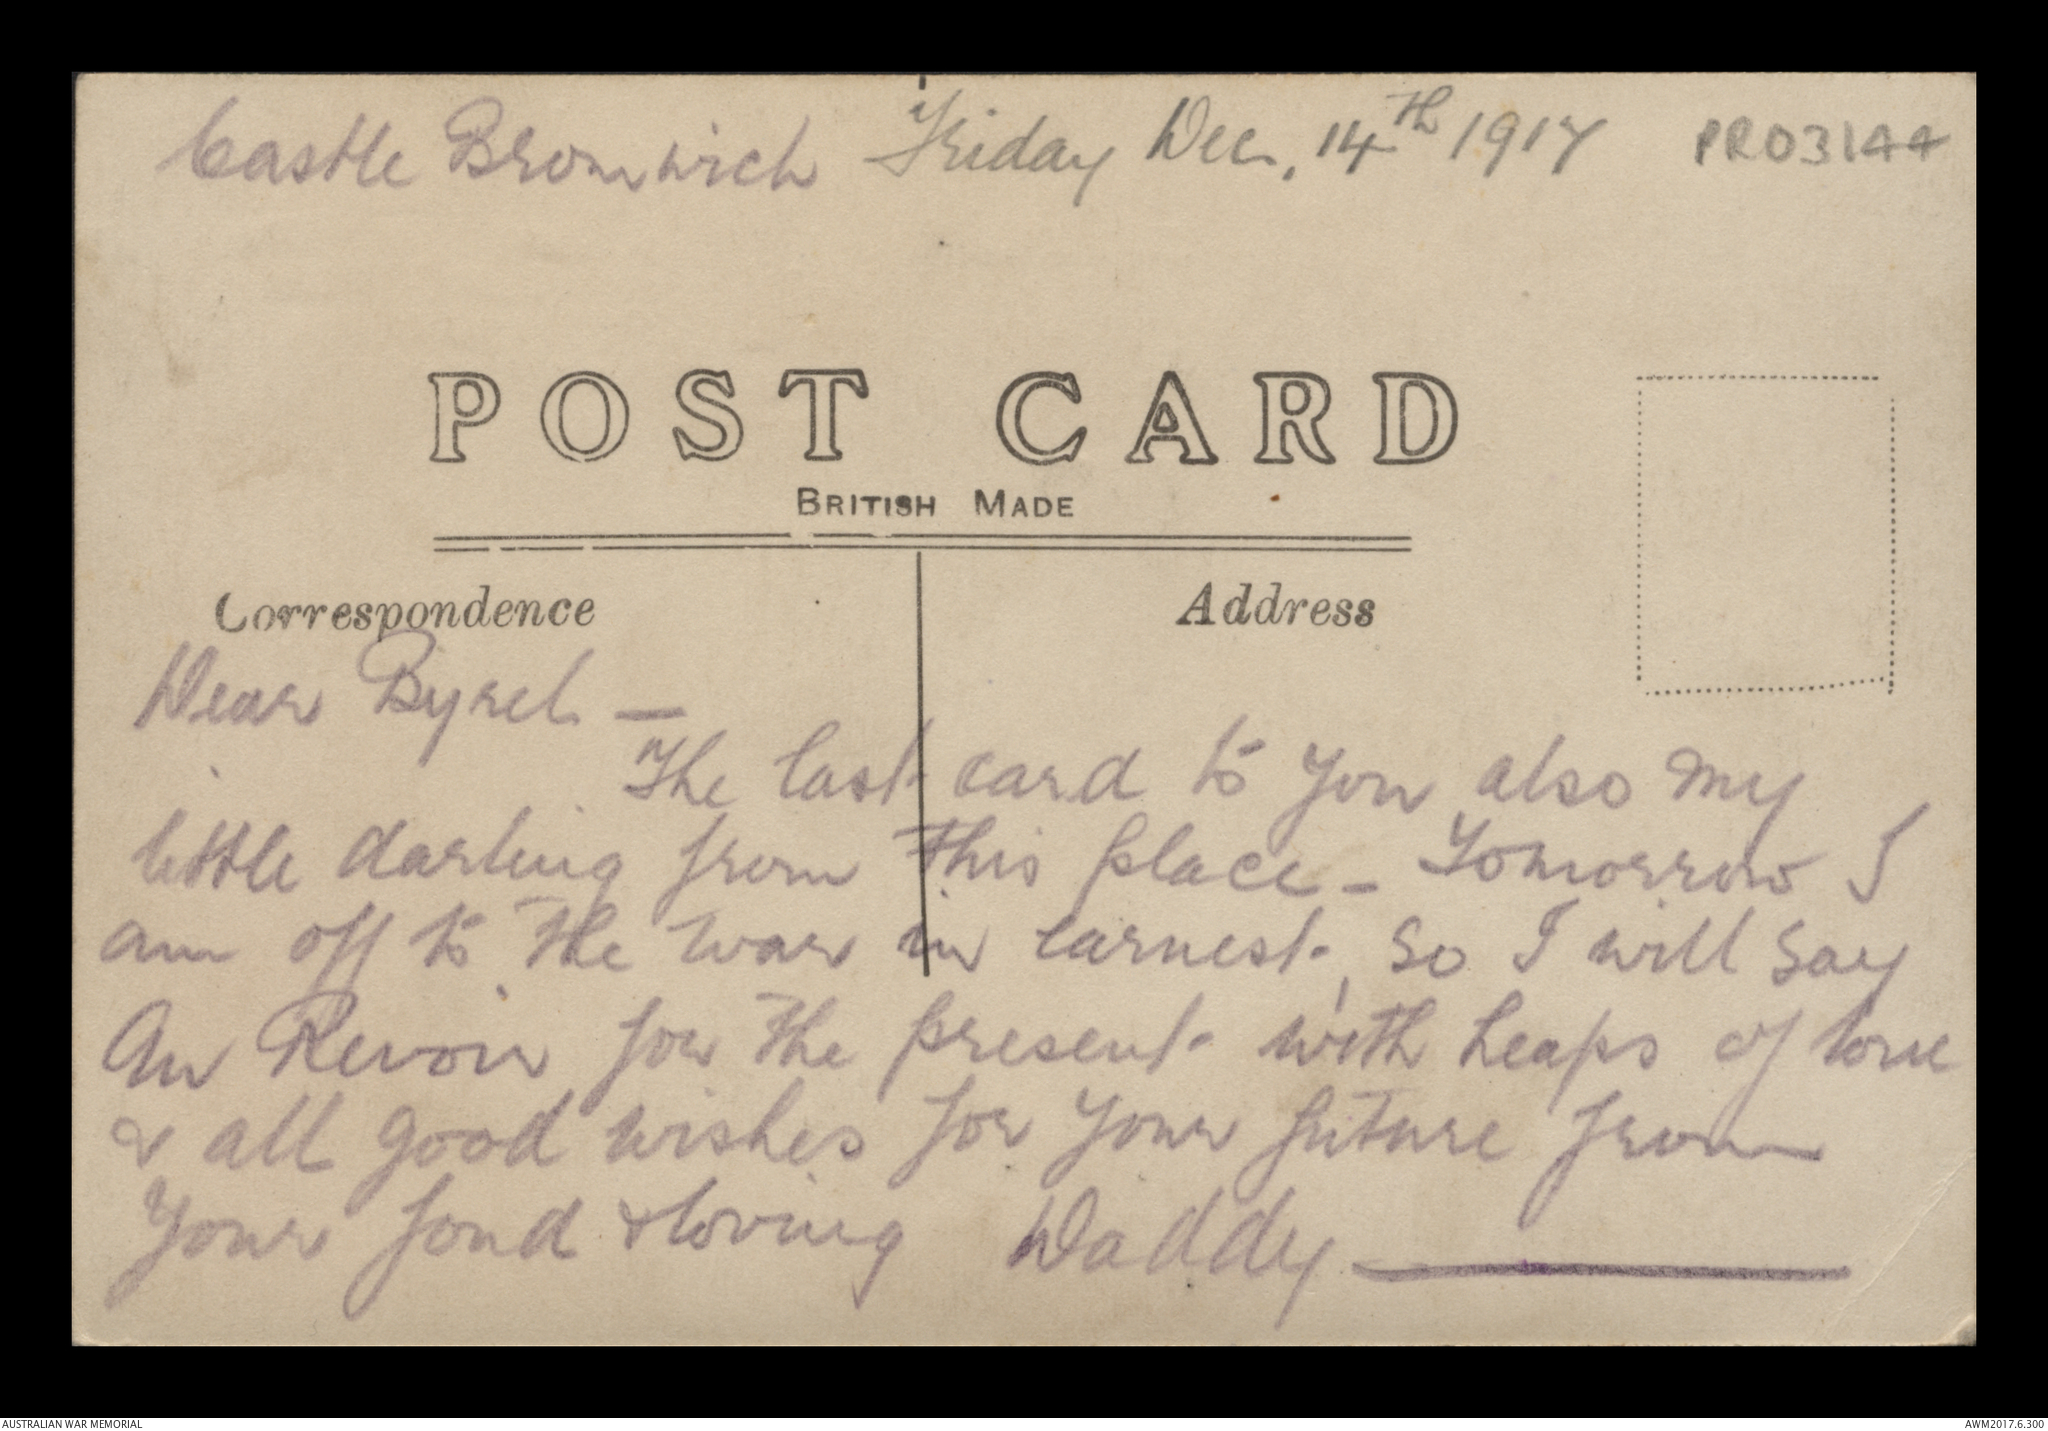 Castle Bromwich Friday Dec, 14th 1917 PR03144
POST CARD
BRITISH MADE
Correspondence
Address
Dear Byrel —
The last card to you also my
little darling from this place – Tomorrow I
am off to the war in earnest, so I will say
Au Revoir for the present with heaps of love
& all good wishes for your future from
Your fond & loving Daddy
AUSTRALIAN WAR MEMORIAL
AWM2017.6.300